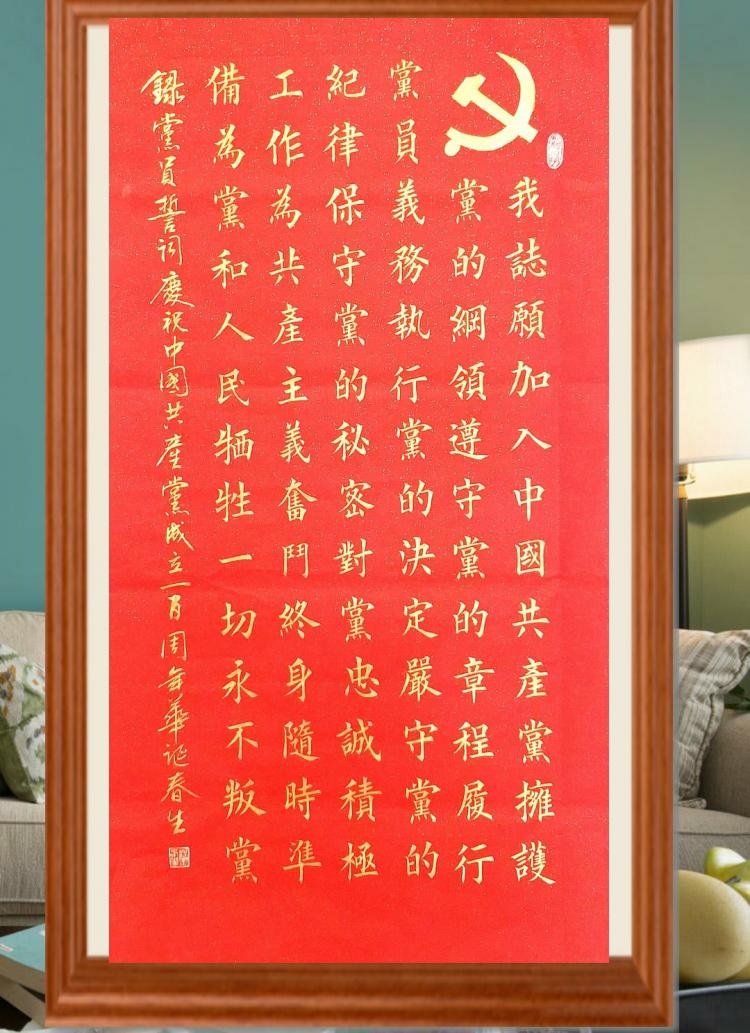 我誌願加入中國共產黨擁護
黨的綱領遵守黨的章程履行
黨員義務執行黨的決定嚴守黨的
紀律保守黨的秘密對黨忠誠積極
工作為共產主義奮鬥終身隨時準
備為黨和人民牺牲一切永不叛黨
錄黨員誓詞慶祝中國共產黨成立一百周年華誕春生